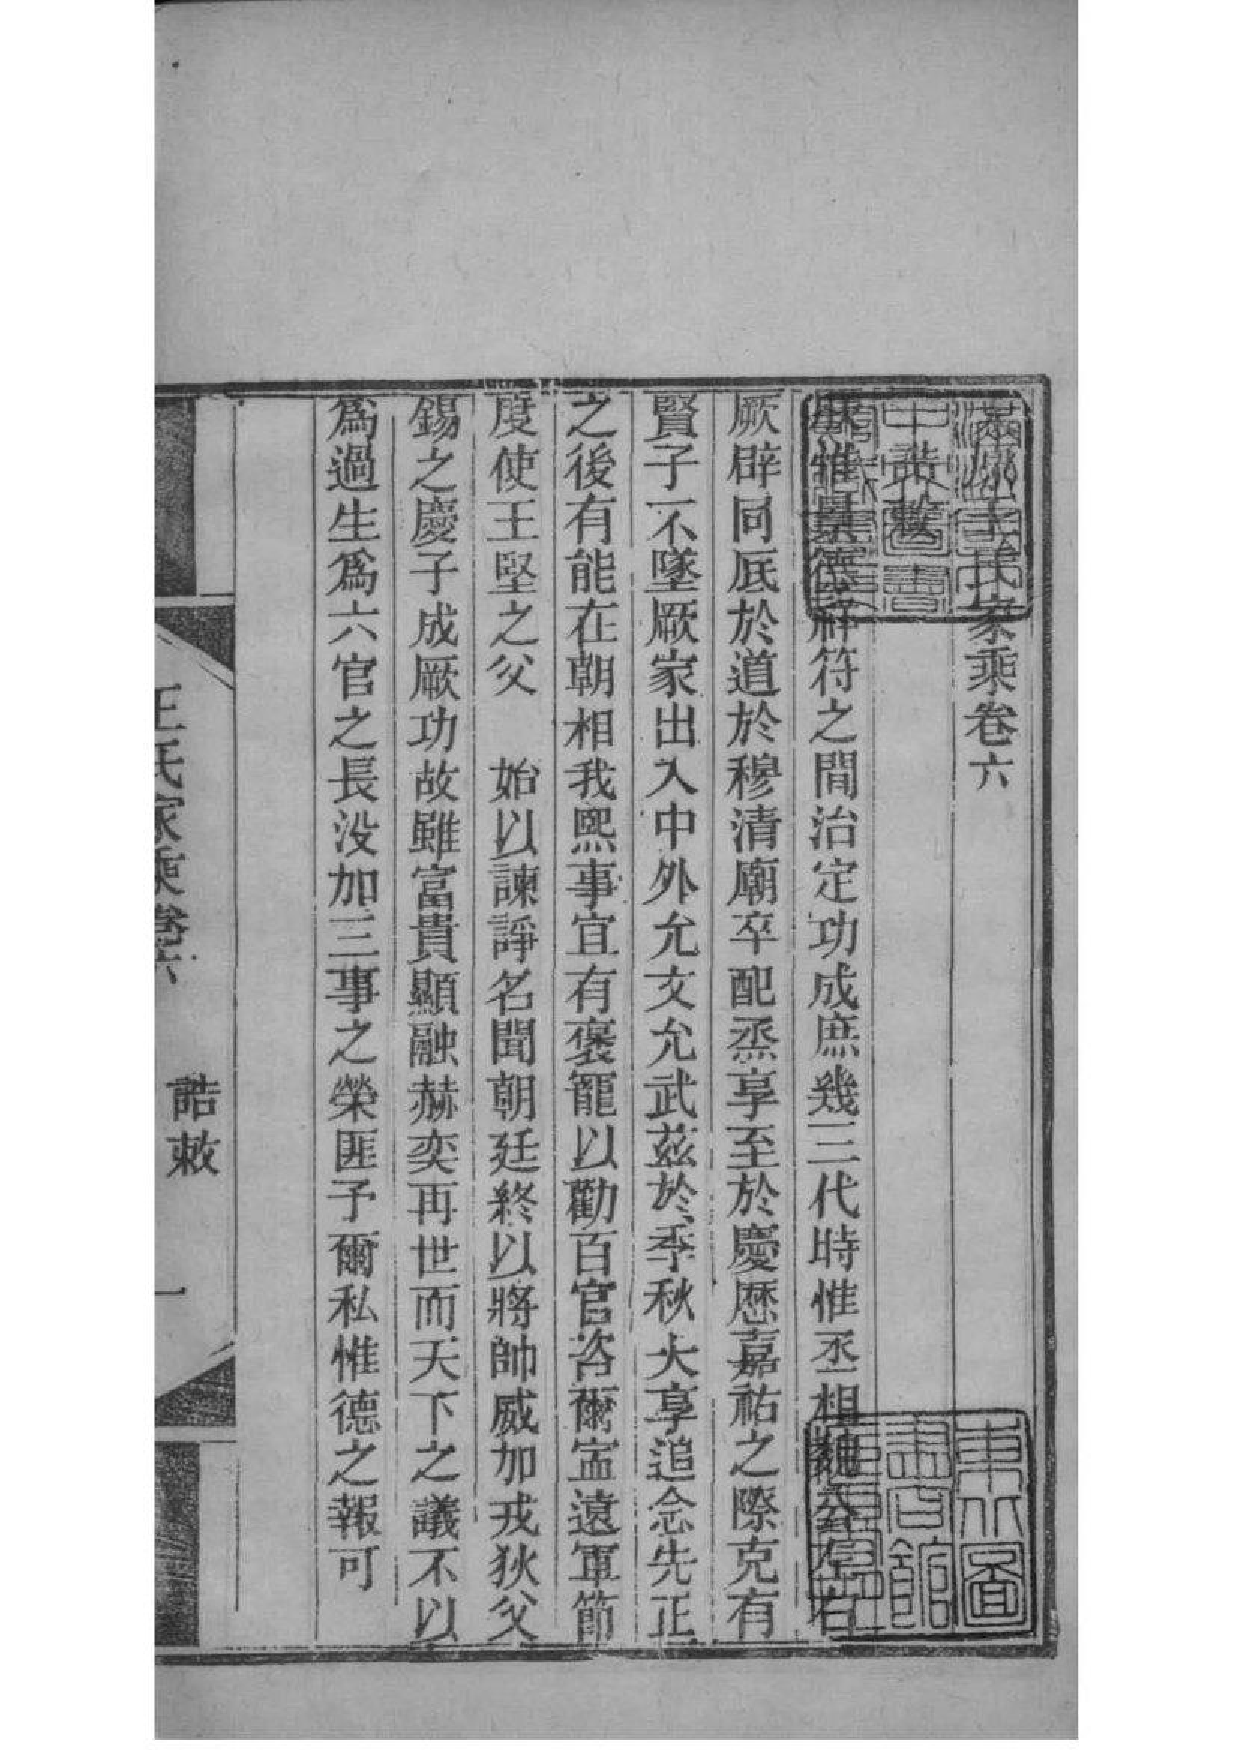 王氏家乘卷六
誥敕
惟景德祥符之間治定功成庶幾三代時惟丞相魏公左右
厥辟同底於道於穆清廟卒配烝享至於慶歷嘉祐之際克有
賢子不墜厥家出入中外允文允武茲於季秋大享追念先正
之後有能在朝相我熙事宜有褒寵以勸百官咨爾寍遠軍節
度使王堅之父　始以諫諍名聞朝廷終以將帥威加戎狄父
錫之慶子成厥功故雖富貴顯融赫奕再世而天下之議不以
爲過生爲六官之長没加三事之榮匪予爾私惟德之報可
王氏家乘卷六
誥敕
一